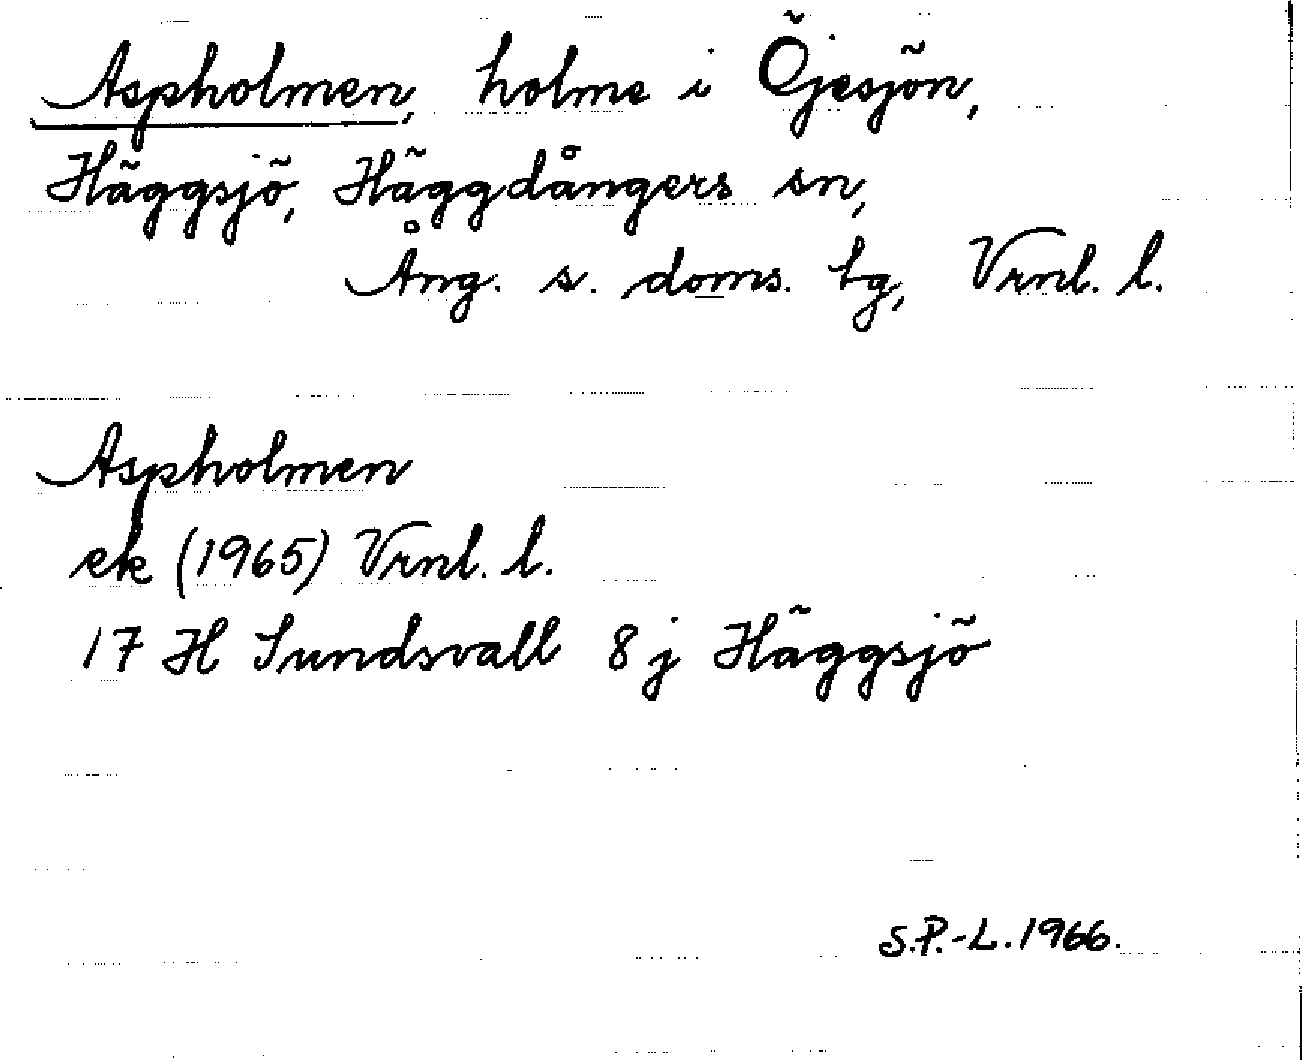 Aspholmen, holme i Öjesjön,
Häggsjö, Häggdångers sn,
Ång. s. doms. tg, Vrnl. l.
Aspholmen
ek (1965) Vrnl. l.
17 H Sundsvall 8 j Häggsjö
S.P.-L. 1966.